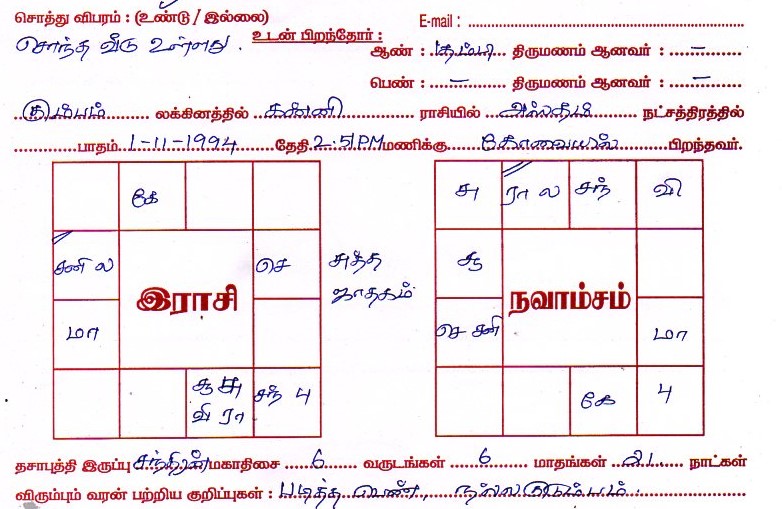 சொத்து விபரம் : (உண்டு / இல்லை) E-mail :
சொந்த வீடு உள்ளது. உடன் பிறந்தோர் :
ஆண் : தம்பி திருமணம் ஆனவர் : –
பெண் : – திருமணம் ஆனவர் : –
கும்பம் லக்கினத்தில் கன்னி ராசியில் அஸ்தம் நட்சத்திரத்தில்
பாதம் 1-11-1994 தேதி 2.51PM மணிக்கு கோவையில் பிறந்தவர்.
கே சு ரா ல சந் வி
சனி ல செ சுத்த சூ
இராசி ஜாதகம் நவாம்சம்
மா செ சனி மா
சூ சு சந் 4 கே 4
வி ரா
தசாபுத்தி இருப்பு சந்திரன் மகாதிசை 6 வருடங்கள் 6 மாதங்கள் 21 நாட்கள்
விரும்பும் வரன் பற்றிய குறிப்புகள் : படித்த பெண், நல்ல குடும்பம்.